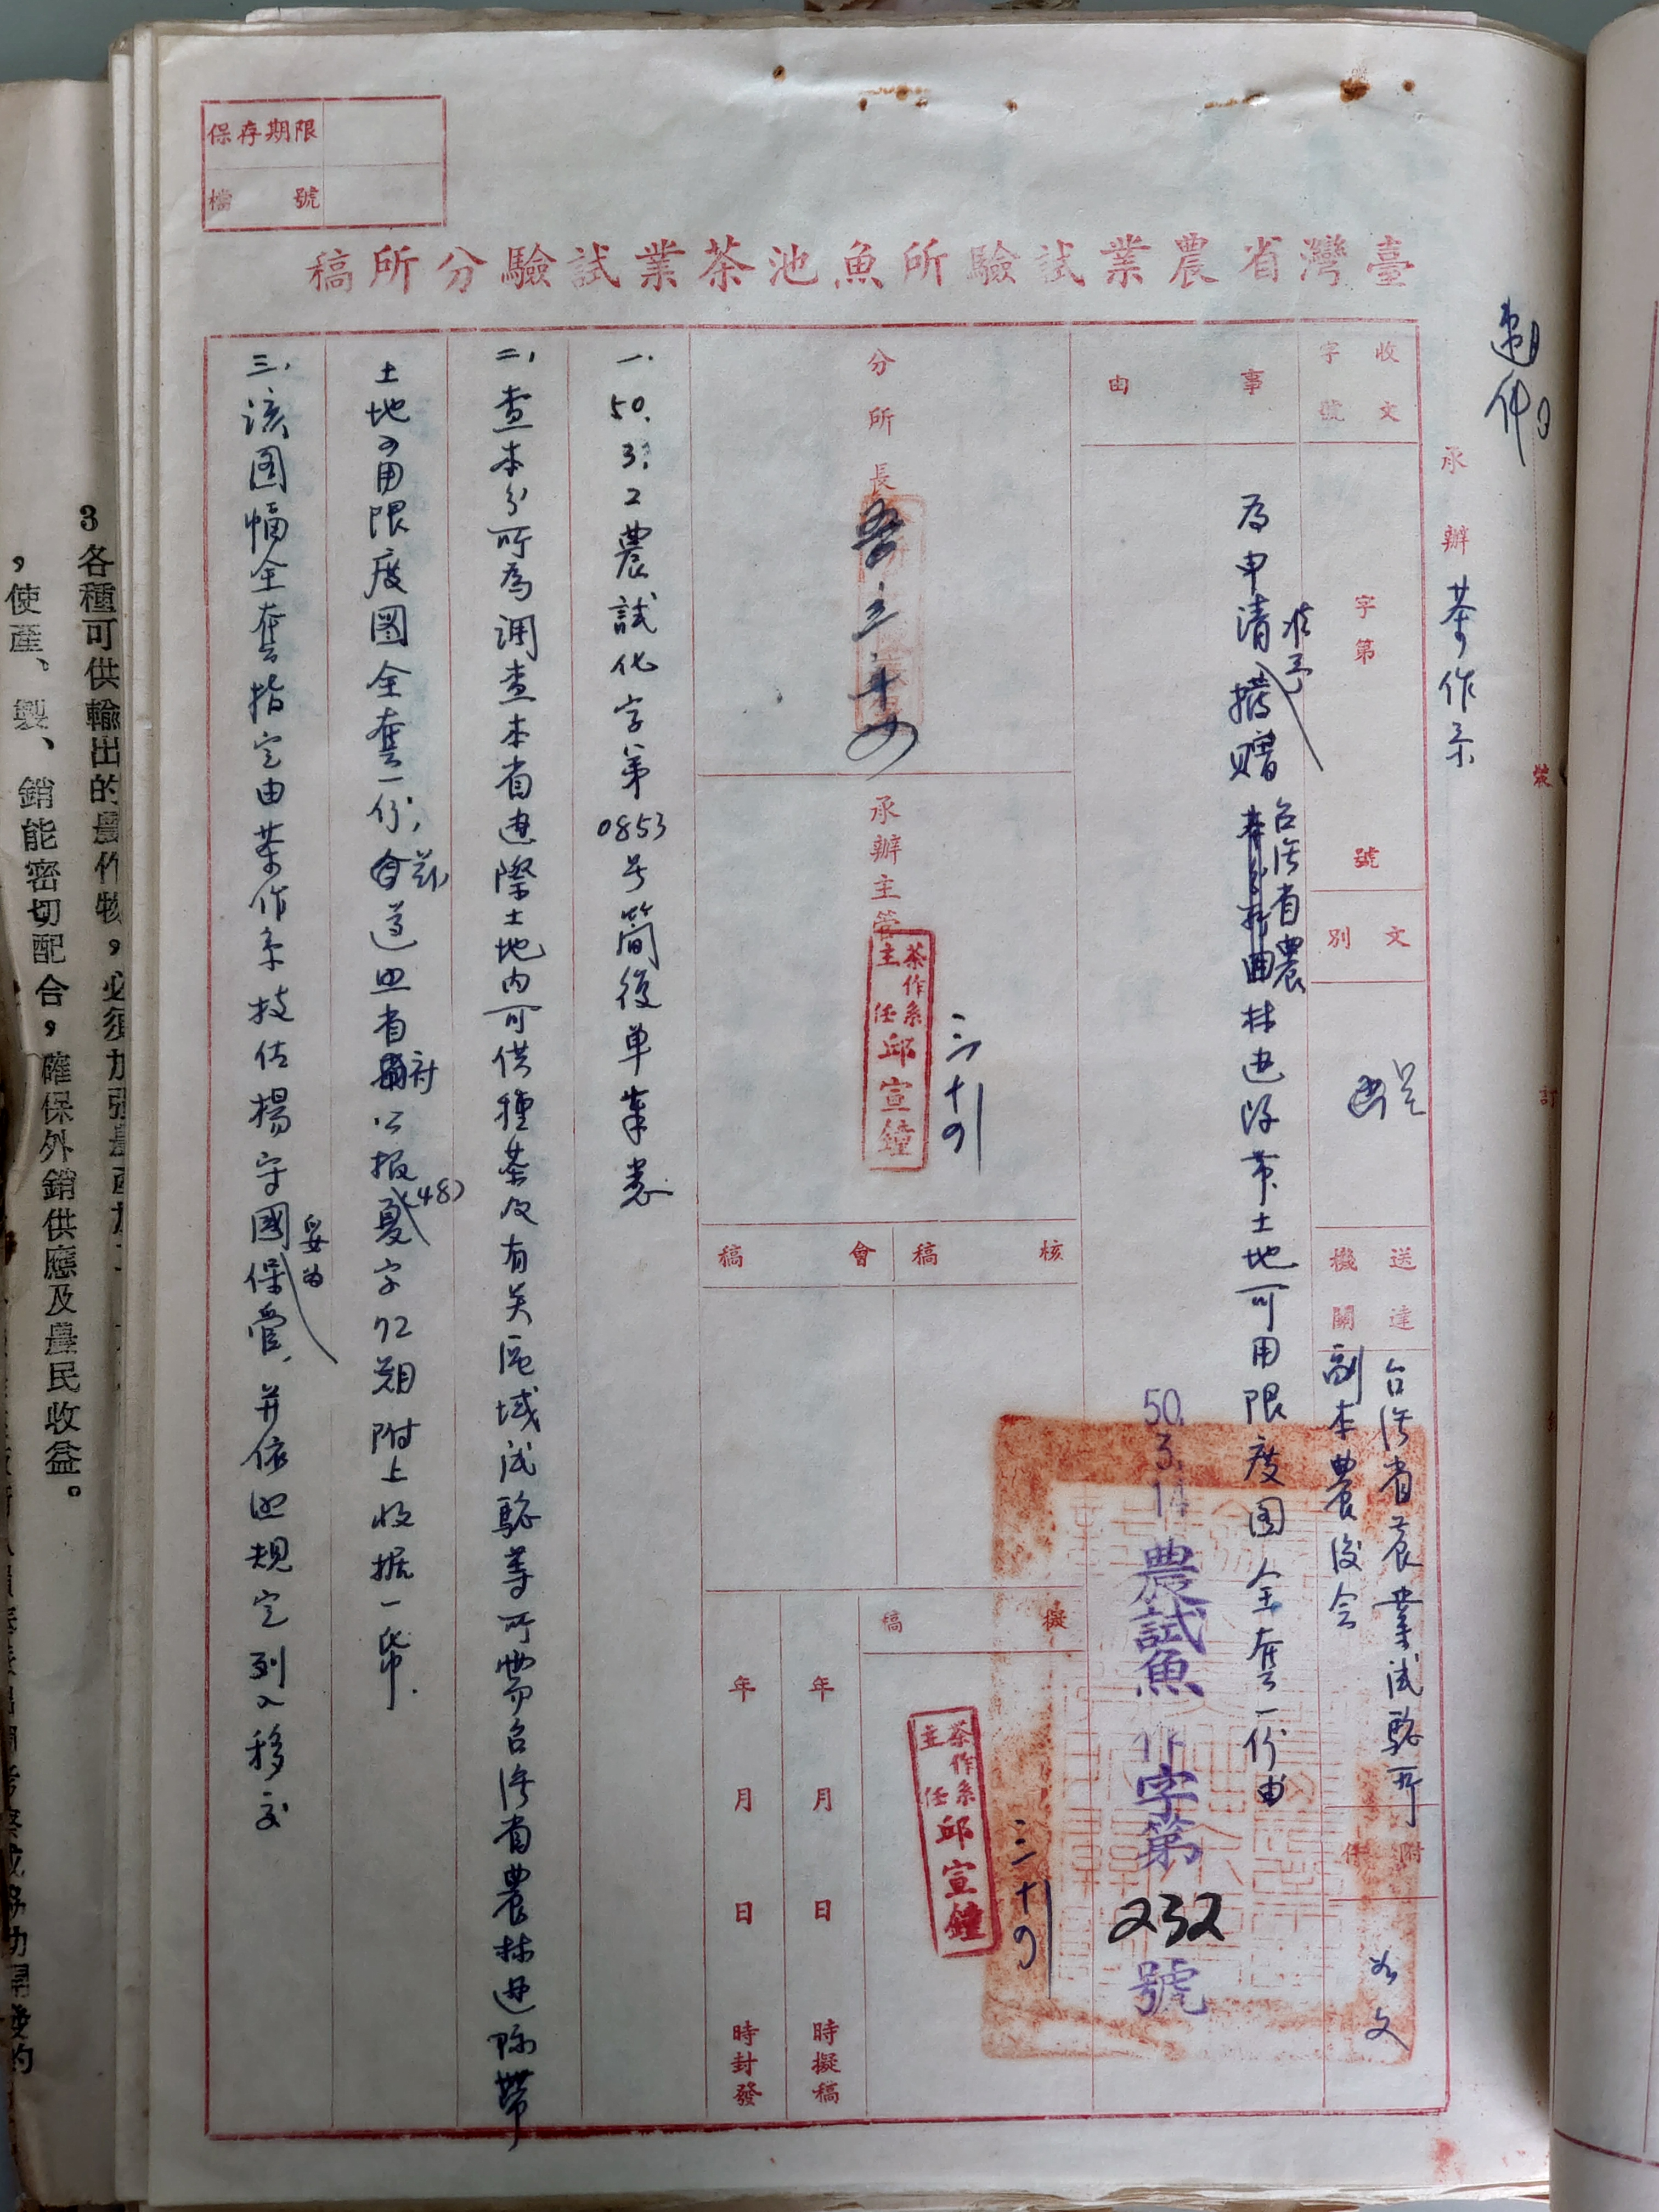 保存期限
檔號
臺灣省農業試驗所魚池茶業試驗分所稿
承辦 茶作系
裝
訂
收文
字號
字第 號
文別
送達機關
台灣省農業試驗所
副本農復会
附件
如文
事由
為申請准予撥贈台灣省農林边际帶土地可用限度図全套一份由
50.3.14 農試魚作字第232號
分所長
承辦主管
茶作系主任邱宣鐘
核稿
會稿
擬稿
茶作系主任邱宣鐘
年 月 日 時擬稿
年 月 日 時封發
一. 50.3.2農試化字第0853号簡復单奉悉
二, 查本分所為调查本省边際土地内可供種茶及有关區域试驗等所需台湾省農林边际帶
土地可用限度圖全套一份, 兹遵照省府公报(48)夏字72期附上收据一帋.
三, 该図幅全套指定由茶作系技佐楊守國妥為保管, 并依照規定列入移交
3各種可供輸出的農作物，必須加強
，使產、製、銷能密切配合，確保外銷供應及農民收益。